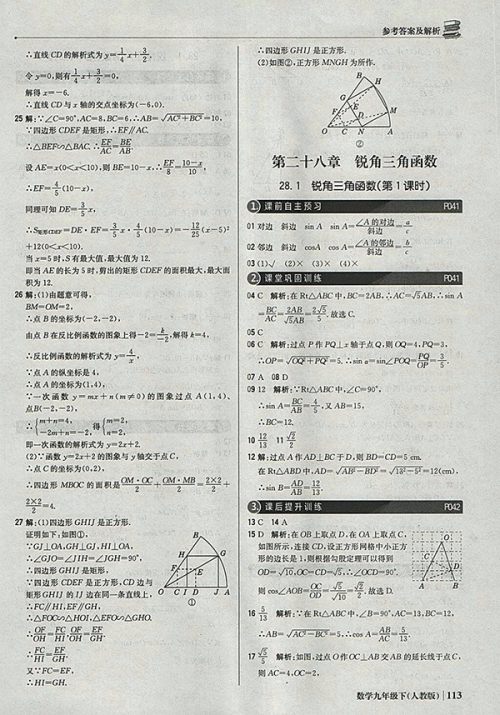 参考答案及解析
∴直线CD的解析式为y=1/4x+3/2,
令y=0,则有1/4x+3/2=0,
解得x=-6.
∴直线CD与x轴的交点坐标为(-6,0).
25 解:∵∠C=90°,AC=8,BC=6,∴AB=√(AC²+BC²)=10,
∵四边形CDEF是矩形,∴EF∥AC.
∴△BEF∽△BAC.∴EF/AC=BE/AB.
设AE=x(0<x<10),则BE=10-x.∴EF/8=(10-x)/10,
∴EF=4/5(10-x),
同理可知DE=3/5x,
∴S矩形CDEF=DE·EF=3/5x·4/5(10-x)=-12/25(x-5)²
+12(0<x<10).
当x=5时,S有最大值,最大值为12.
即当AE的长为5时,剪出的矩形CDEF的面积最大,最大面
积为12.
26 解:(1)由题意可得,
BM=OM=2,
∴点B的坐标为(-2,-2),
由点B在反比例函数的图象上得-2=k/-2,解得k=4.
∴反比例函数的解析式为y=4/x,
∵点A的纵坐标是4,
∴点A的坐标为(1,4),
∵一次函数y=mx+n(m≠0)的图象过点A(1,4)、
点B(-2,-2),
∴{m+n=4, -2m+n=-2, 得{m=2, n=2.
即一次函数的解析式为y=2x+2.
(2)∵函数y=2x+2的图象与y轴交于点C,
∴点C的坐标为(0,2),
∴四边形MBOC的面积是OM·OC/2+OM·MB/2=2×2/2+
2×2/2=4.
27 解:(1)四边形GHIJ是正方形.
证明如下:如图①,
∵GJ⊥OA,GH⊥GJ,HI⊥OA,
∴∠GJO=∠JIH=∠JGH=90°,
∴四边形GHIJ是矩形,
∵四边形CDEF是正方形,CD边与
矩形GHIJ的IJ边在同一条直线上,
∴FC∥HI,EF∥GH,
∴△FOC∽△HOI,△EFO∽△GHO.
∴OF/OH=FC/HI,OF/OH=EF/GH.
∴FC/HI=EF/GH.
又∵FC=EF.
∴HI=GH.
B
H
G
F
E
O
C
I
D
J
A
①
∴四边形GHIJ是正方形.
(2)如图②,正方形MNGH为所作.
B
H
G
D
M
F
E
O
C
N
A
②
第二十八章 锐角三角函数
28.1 锐角三角函数(第1课时)
1. 课前自主预习 P041
01 对边 斜边 sin A sin A=∠A的对边/斜边=a/c
02 邻边 斜边 cosA cos A=∠A的邻边/斜边=b/c
03 (1)√ (2)× (3)× (4)×
2. 课堂巩固训练 P041
04 C 解析:在Rt△ABC中,BC=2AB,∴AC=√5AB.∴sin A
=BC/AC=2AB/√5AB=2√5/5.故选C.
05 C
06 C 解析:过点P作PQ⊥x轴于点Q,则OQ=4,PQ=3,
∴OP=√(OQ²+PQ²)=5.∴sin α=sin∠POQ=PQ/OP=3/5.
07 A 08 D
09 12 解析:∵Rt△ABC中,∠C=90°,
∴sin A=BC/AB=4/5,又AB=15,
∴BC=12.
10 12/13 11 √2/2
12 解:过点A作AD⊥BC于D,则BD=CD=5 cm.
在Rt△ABD中,AD=√(AB²-BD²)=√(13²-5²)=12(cm),
∴sin B=AD/AB=12/13.
3. 课后提升训练 P042
13 C 14 A
15 D 解析:在OB上取点D,在OA上取点C,
如图所示,连接CD,设正方形网格中小正方
形的边长是1,则根据勾股定理可以得到
OD=√10,OC=CD=√5,∴∠OCD=90°.
则cos∠AOB=OC/OD=√5/√10=√2/2.故选D.
A
C
D
O
B
16 5/13 解析:∵在Rt△ABC中,∠B=90°,AC=13,BC=12,
∴AB=√(AC²-BC²)=5.∴cos A=AB/AC=5/13.
17 √5/5 解析:如图,过点O作OC⊥AB交AB的延长线于点C,
则AC=4,OC=2,
数学九年级下(人教版) 113